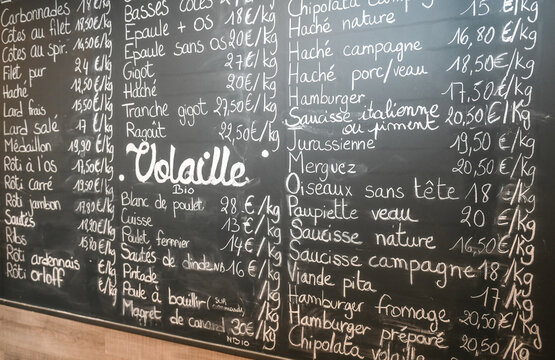 Carbonnades €/kg
Côtes au filet 18,50€/kg
Côtes au spir. 16,50€/kg
Filet pur 24 €/kg
Haché 12,50 €/kg
Lard frais 16,50€/kg
Lard salé 17 €/kg
Médaillon 19,90 €/kg
Rôti à l'os 17,50€/kg
Rôti carré €/kg
Rôti jambon €/kg
Sautés €/kg
Ribs €/kg
Rôti ardennais €/kg
Rôti orloff €/kg
Basses côtes
Epaule + os 18€/kg
Epaule sans os 20€/kg
Gigot 24 €/kg
Haché 20€/kg
Tranche gigot 27,50€/kg
Ragoût 22,50€/kg
Volaille
Bio
Blanc de poulet 28 €/kg
Cuisse 13€/kg
Poulet fermier 14€/kg
Sautés de dinde NB 16 €/kg
Pintade €/kg
Poule à bouillir (SUR COMMANDE)
Magret de canard 30€/kg
N BIO
Chipolata 15 €/kg
Haché nature
Haché campagne 16,80 €/kg
Haché porc/veau 18,50€/kg
Hamburger 17,50€/kg
Saucisse italienne 20,50 €/kg
ou piment
Jurassienne 19,50 €/kg
Merguez 20,50 €/kg
Oiseaux sans tête 18 €/kg
Paupiette veau 20 €/kg
Saucisse nature 16,50€/kg
Saucisse campagne 18 €/kg
Viande pita 17 €/kg
Hamburger fromage 20,50 €/kg
Hamburger préparé
Chipolata volaille